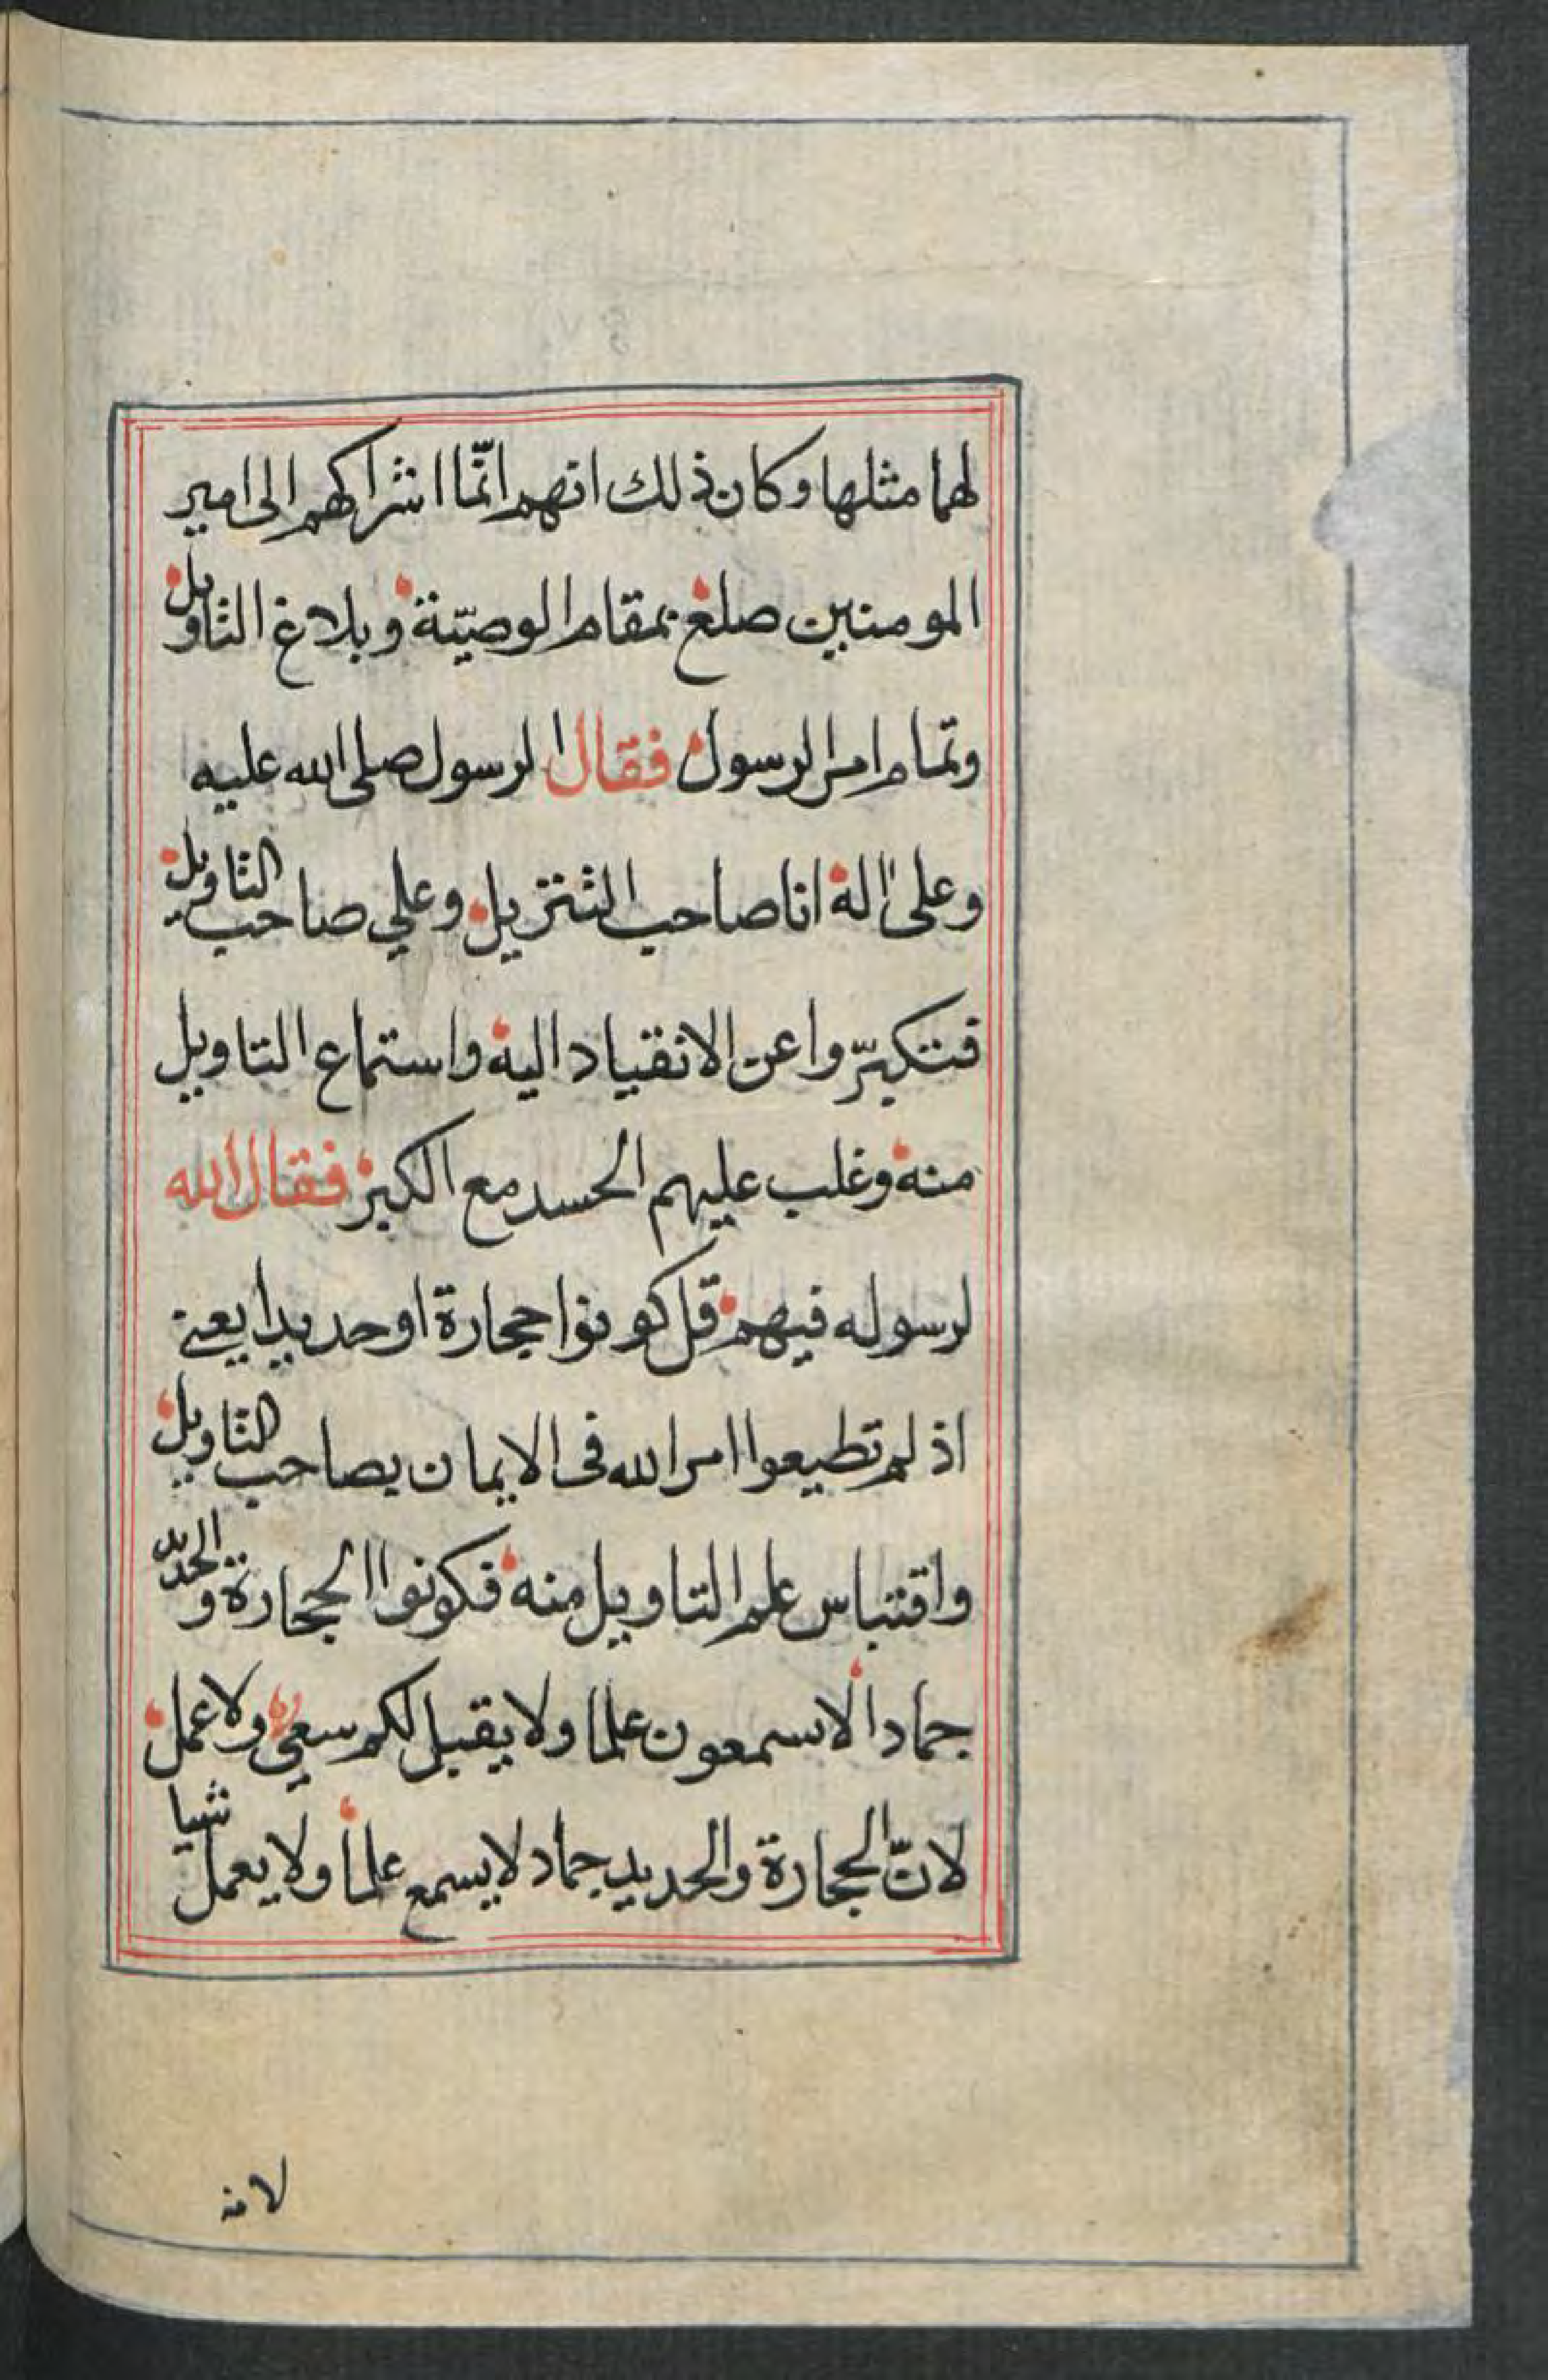 لهما مثلها وكان ذلك انهم انّما اشراكهم الى امير
المومنين صلع بمقام الوصيّة وبلاغ التاويل
وتمام امر الرسول فقال الرسول صلى الله عليه
وعلى اله انا صاحب التنزيل وعلي صاحب التاويل
فتكبّروا عن الانقياد اليه واستماع التاويل
منه وغلب عليهم الحسد مع الكبر فقال الله
لرسوله فيهم قل كونوا حجارة او حديدا يعني
اذ لم تطيعوا امر الله فى الايمان بصاحب التاويل
واقتباس علم التاويل منه فكونوا الحجارة والحديد
جمادا لا تسمعون علما ولا يقبل لكم سعي ولا عمل
لانّ الحجارة والحديد جماد لا يسمع علما ولا يعمل شيا
لانه